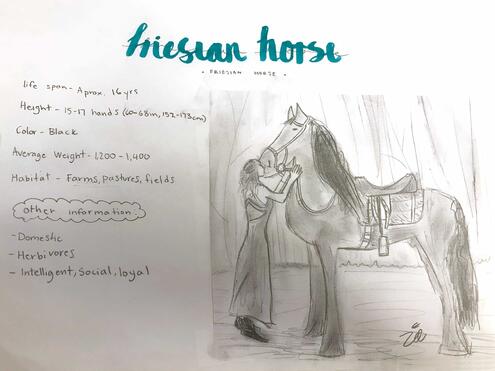 friesian horse
• FRIESIAN HORSE •
life span - Aprox. 16 yrs
Height - 15-17 hands (60-68in, 152-173cm)
Color - Black
Average Weight - 1,200 - 1,400
Habitat - Farms, pastures, fields
other information
- Domestic
- Herbivores
- Intelligent, Social, loyal